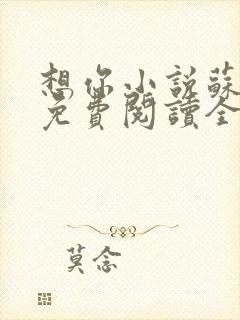 想你小説蘇
免費閱讀全
莫念